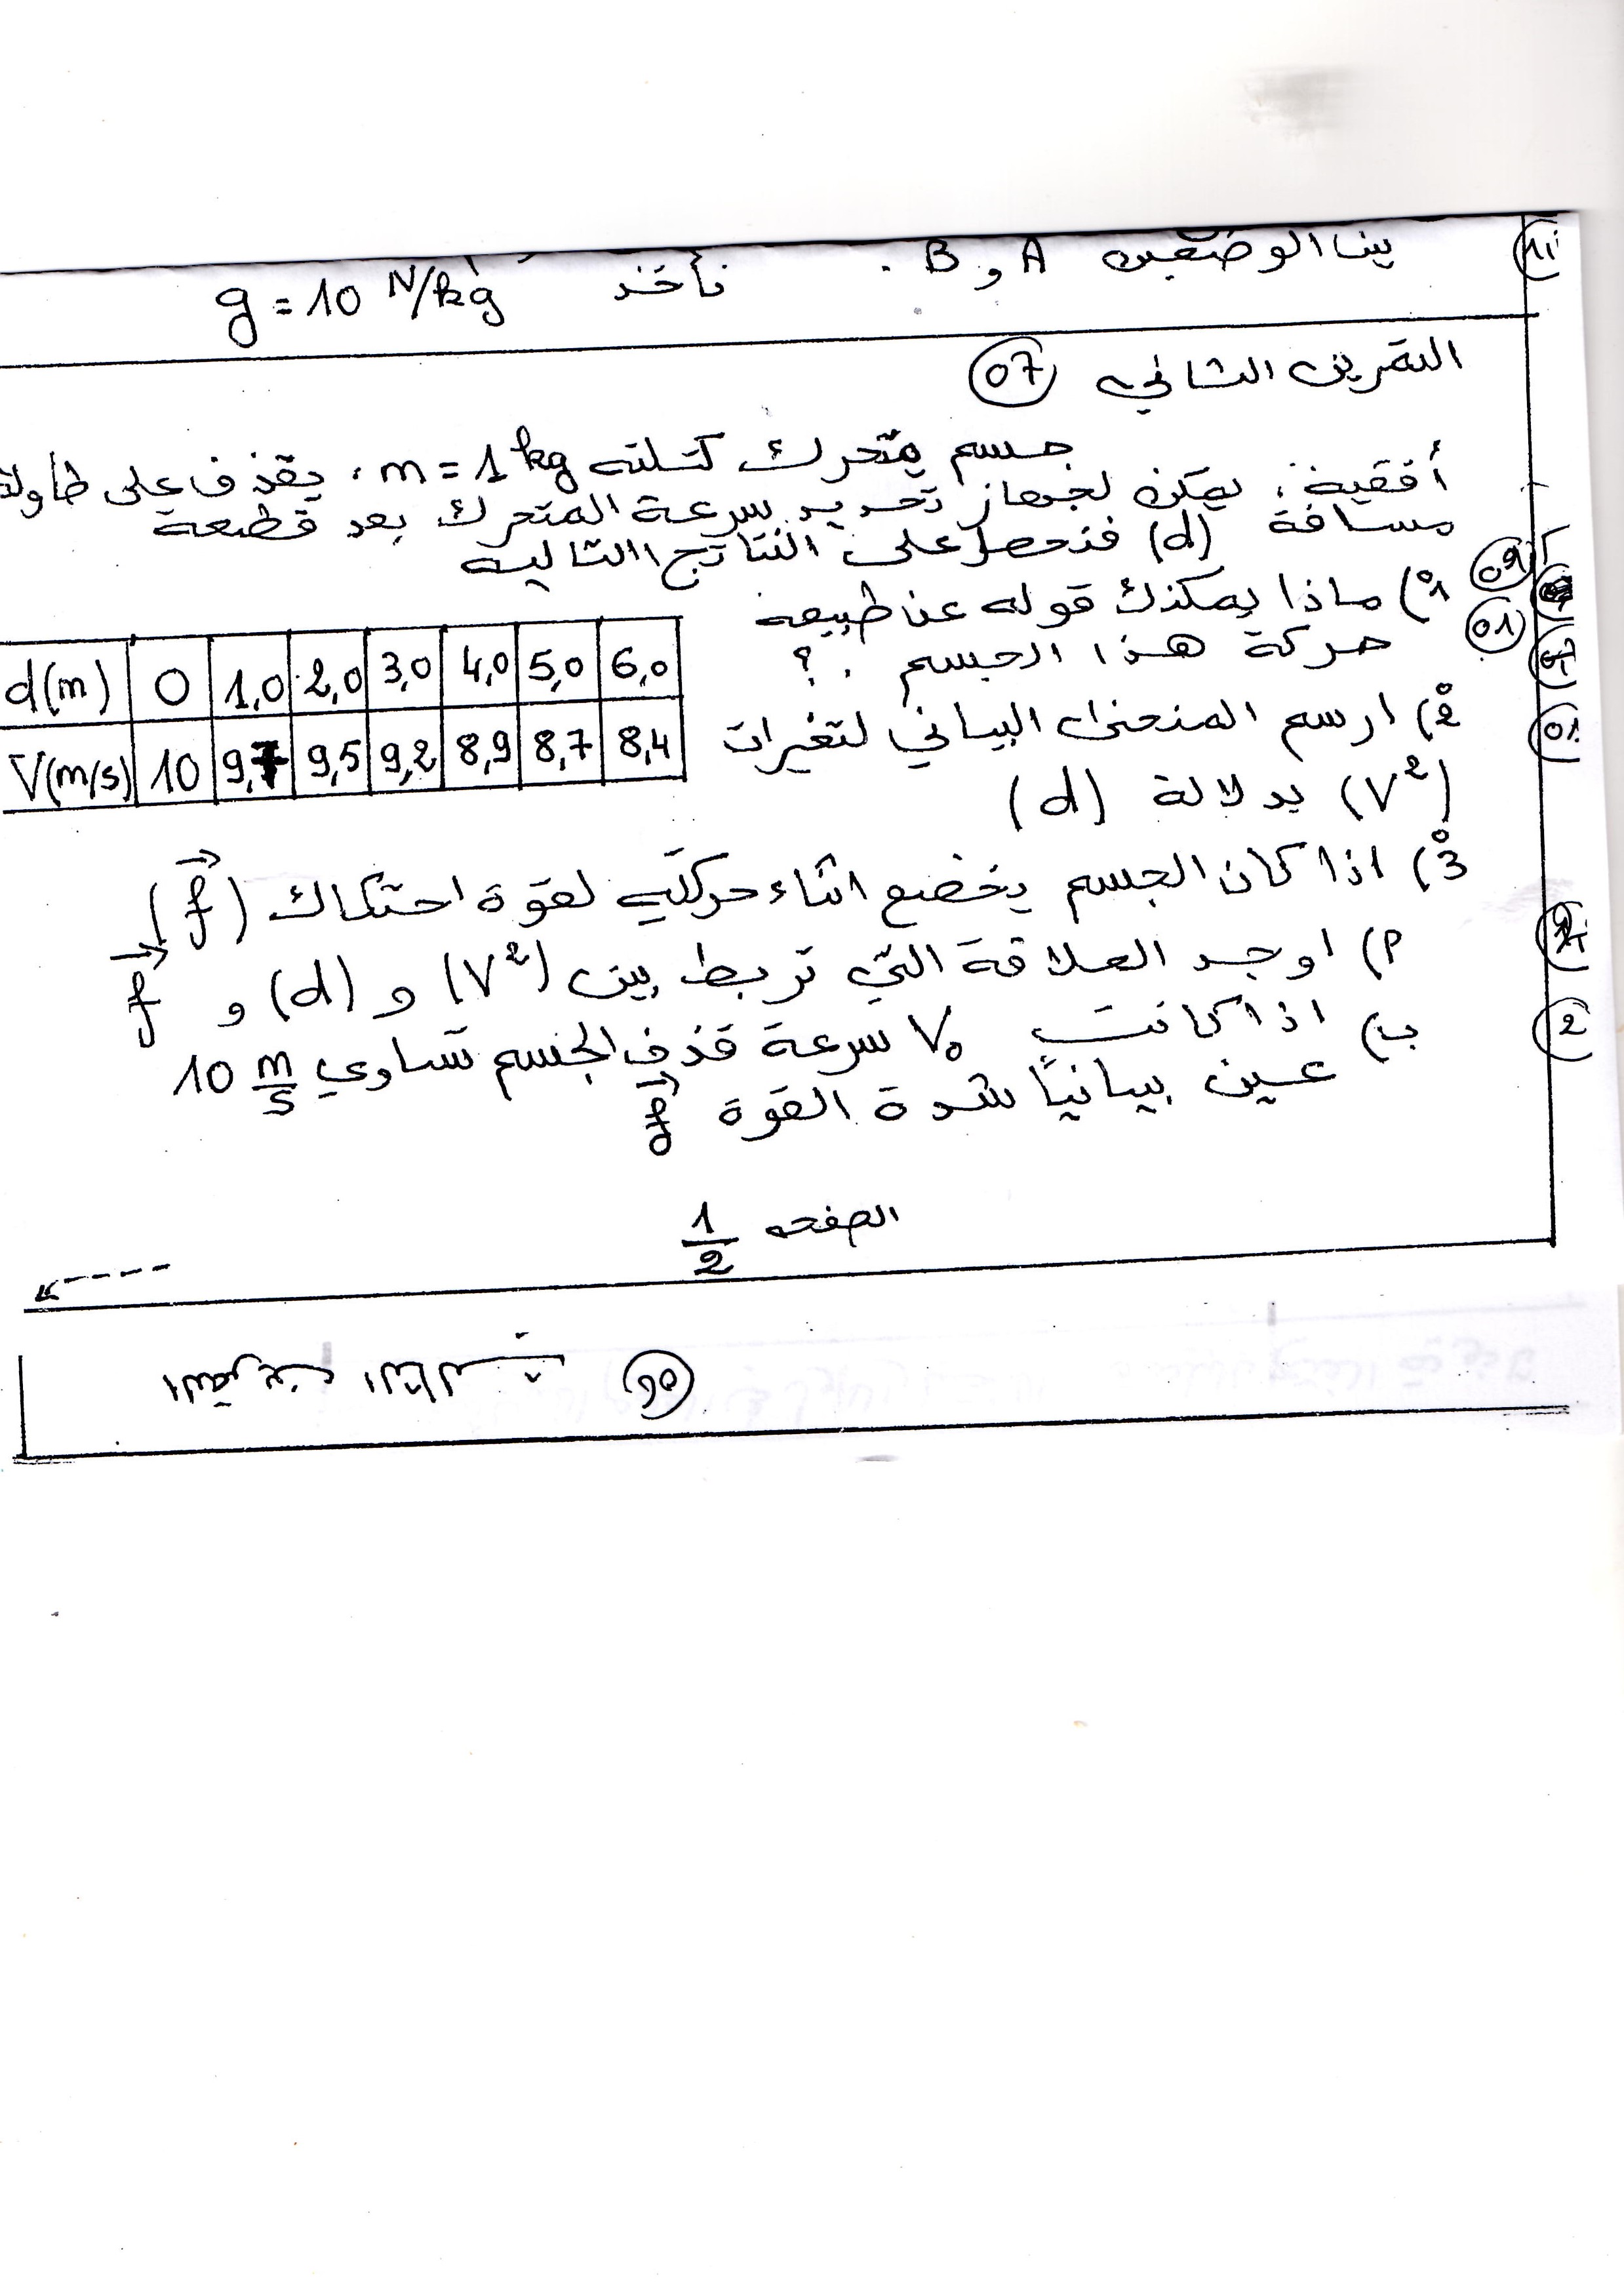 بين الوضعين A و B . نأخذ g = 10 N/kg
التمرين الثاني 07
جسم متحرك كتلته m = 1 kg ، يقذف على طاولة
أفقية ، يمكن لجهاز تحديد سرعة المتحرك بعد قطعه
مسافة (d) فنحصل على النتائج التالية
1°) ماذا يمكنك قوله عن طبيعة
حركة هذا الجسم . ؟
d(m) 0 1,0 2,0 3,0 4,0 5,0 6,0
V(m/s) 10 9,7 9,5 9,2 8,9 8,7 8,4
2°) ارسم المنحنى البياني لتغيرات
(V²) بدلالة (d)
3°) اذا كان الجسم يخضع اثناء حركته لقوة احتكاك (f)
أ) اوجد العلاقة التي تربط بين (V²) و (d) و f
ب) اذا كانت V₀ سرعة قذف الجسم تساوي 10 m/s
عين بيانياً شدة القوة f
الصفحة 1/2
التمرين الثالث